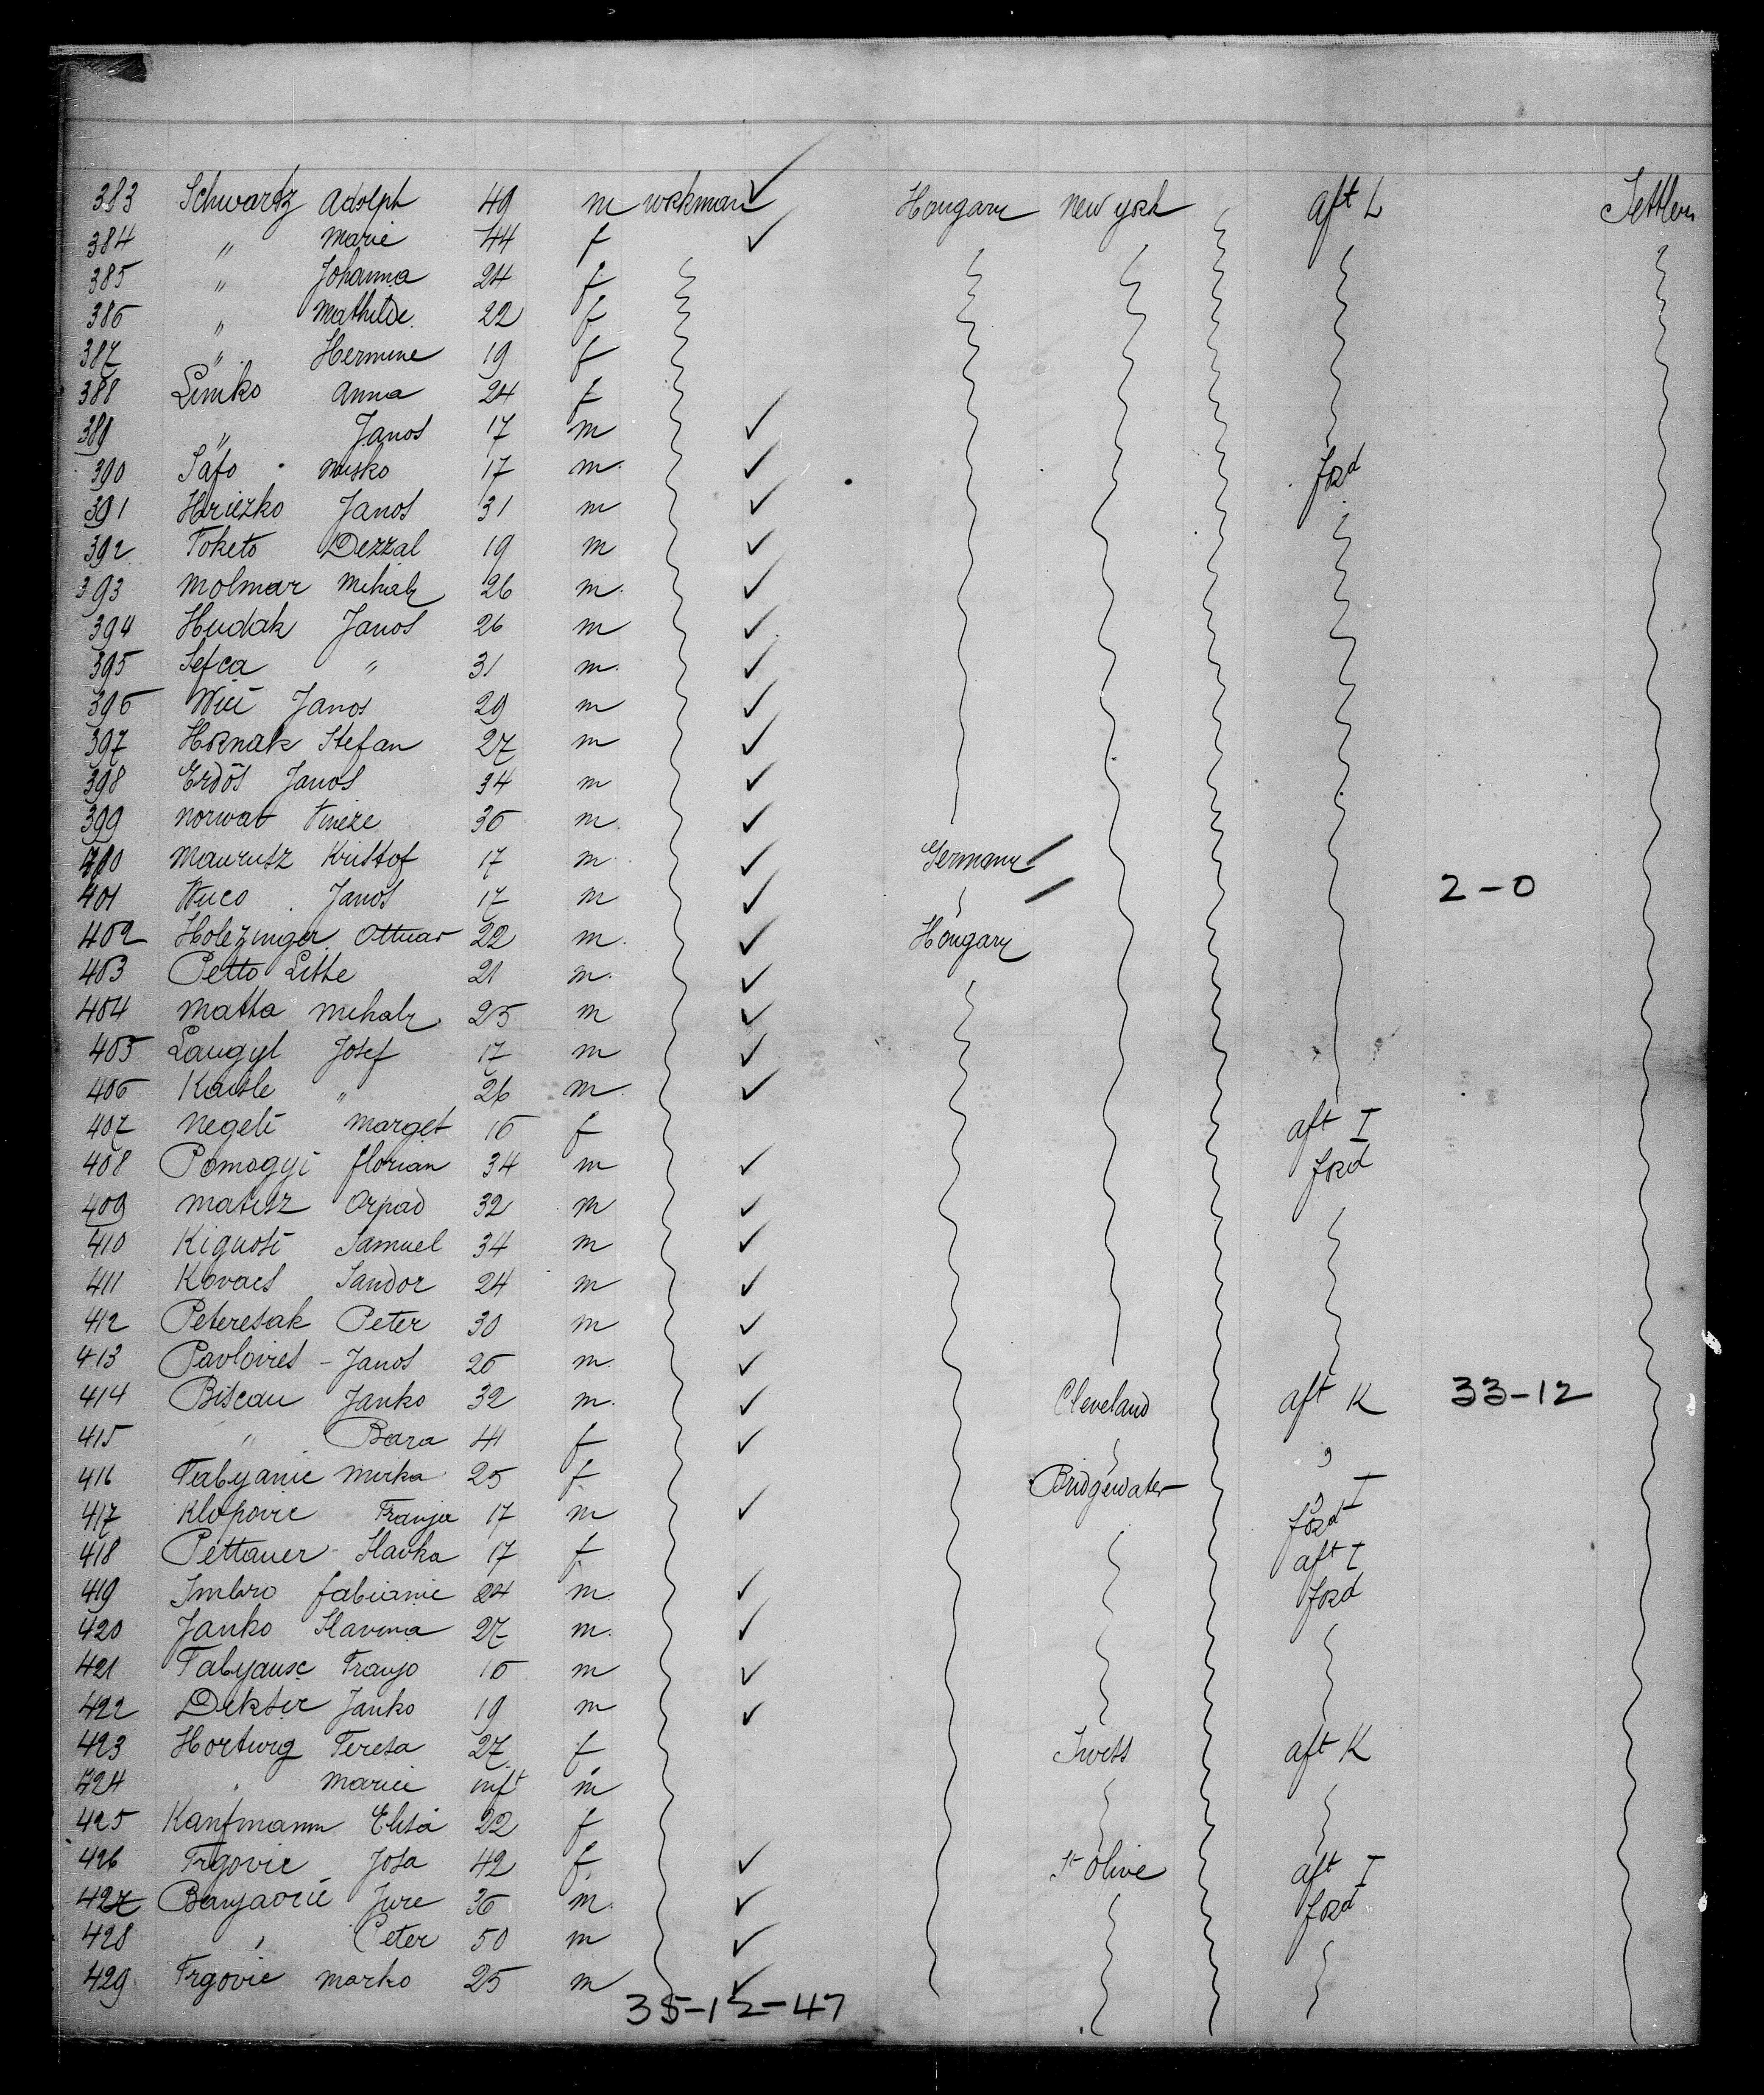 383 Schwartz Adolph 49 m workman ✓ Hongary new york aft L Settlers
384 " marie 44 f ✓
385 " Johanna 24 f
386 " Mathilde 22 f
387 " Hermine 19 f
388 Limko Anna 24 f
389 " Janos 17 m ✓
390 Safo misko 17 m ✓ ford
391 Hriezko Janos 31 m ✓
392 Toketo Dezzal 19 m ✓
393 molmar mihaly 26 m ✓
394 Hudak Janos 26 m ✓
395 Sefca " 31 m ✓
396 Janos 29 m ✓
397 Hornak Stefan 27 m ✓
398 Erdös Janos 34 m ✓
399 norwat Vineze 36 m ✓
400 maurusz Kristof 17 m ✓ Germany
401 Wuco Janos 17 m ✓ 2-0
402 Holezinger Ottmar 22 m ✓ Hongary
403 Petto Litte 21 m ✓
404 matta mihaly 25 m ✓
405 Laugyl Josef 17 m ✓
406 Kaisle " 26 m ✓
407 negeli marget 16 f aft I
408 Pomogyi florian 34 m ✓ ford
409 matisz Arpad 32 m ✓
410 Kignosi Samuel 34 m ✓
411 Kovacs Sandor 24 m ✓
412 Peteresak Peter 30 m ✓
413 Pavlovies - Janos 26 m ✓
414 Biscau Janko 32 m ✓ Cleveland aft K 33-12
415 " Bara 41 f ✓ "
416 Fabyanic mirka 25 f Bridgewater " I
417 Klopovic Franjo 17 m ✓ ford
418 Pettauer Slavka 17 f aft I
419 Imbro fabianic 24 m ✓ ford
420 Janko Slavina 27 m ✓
421 Fabyansc Franjo 16 m ✓
422 Dikstir Janko 19 m ✓
423 Hortwig Teresa 27 f aft K
424 " marici inft m
425 Kaufmann Elisa 22 f
426 Trgovic Josa 42 f ✓ St Olive aft I
427 Banjavric Jure 36 m ✓ ford
428 " Peter 50 m ✓
429 Trgovic marko 25 m ✓
35-12-47